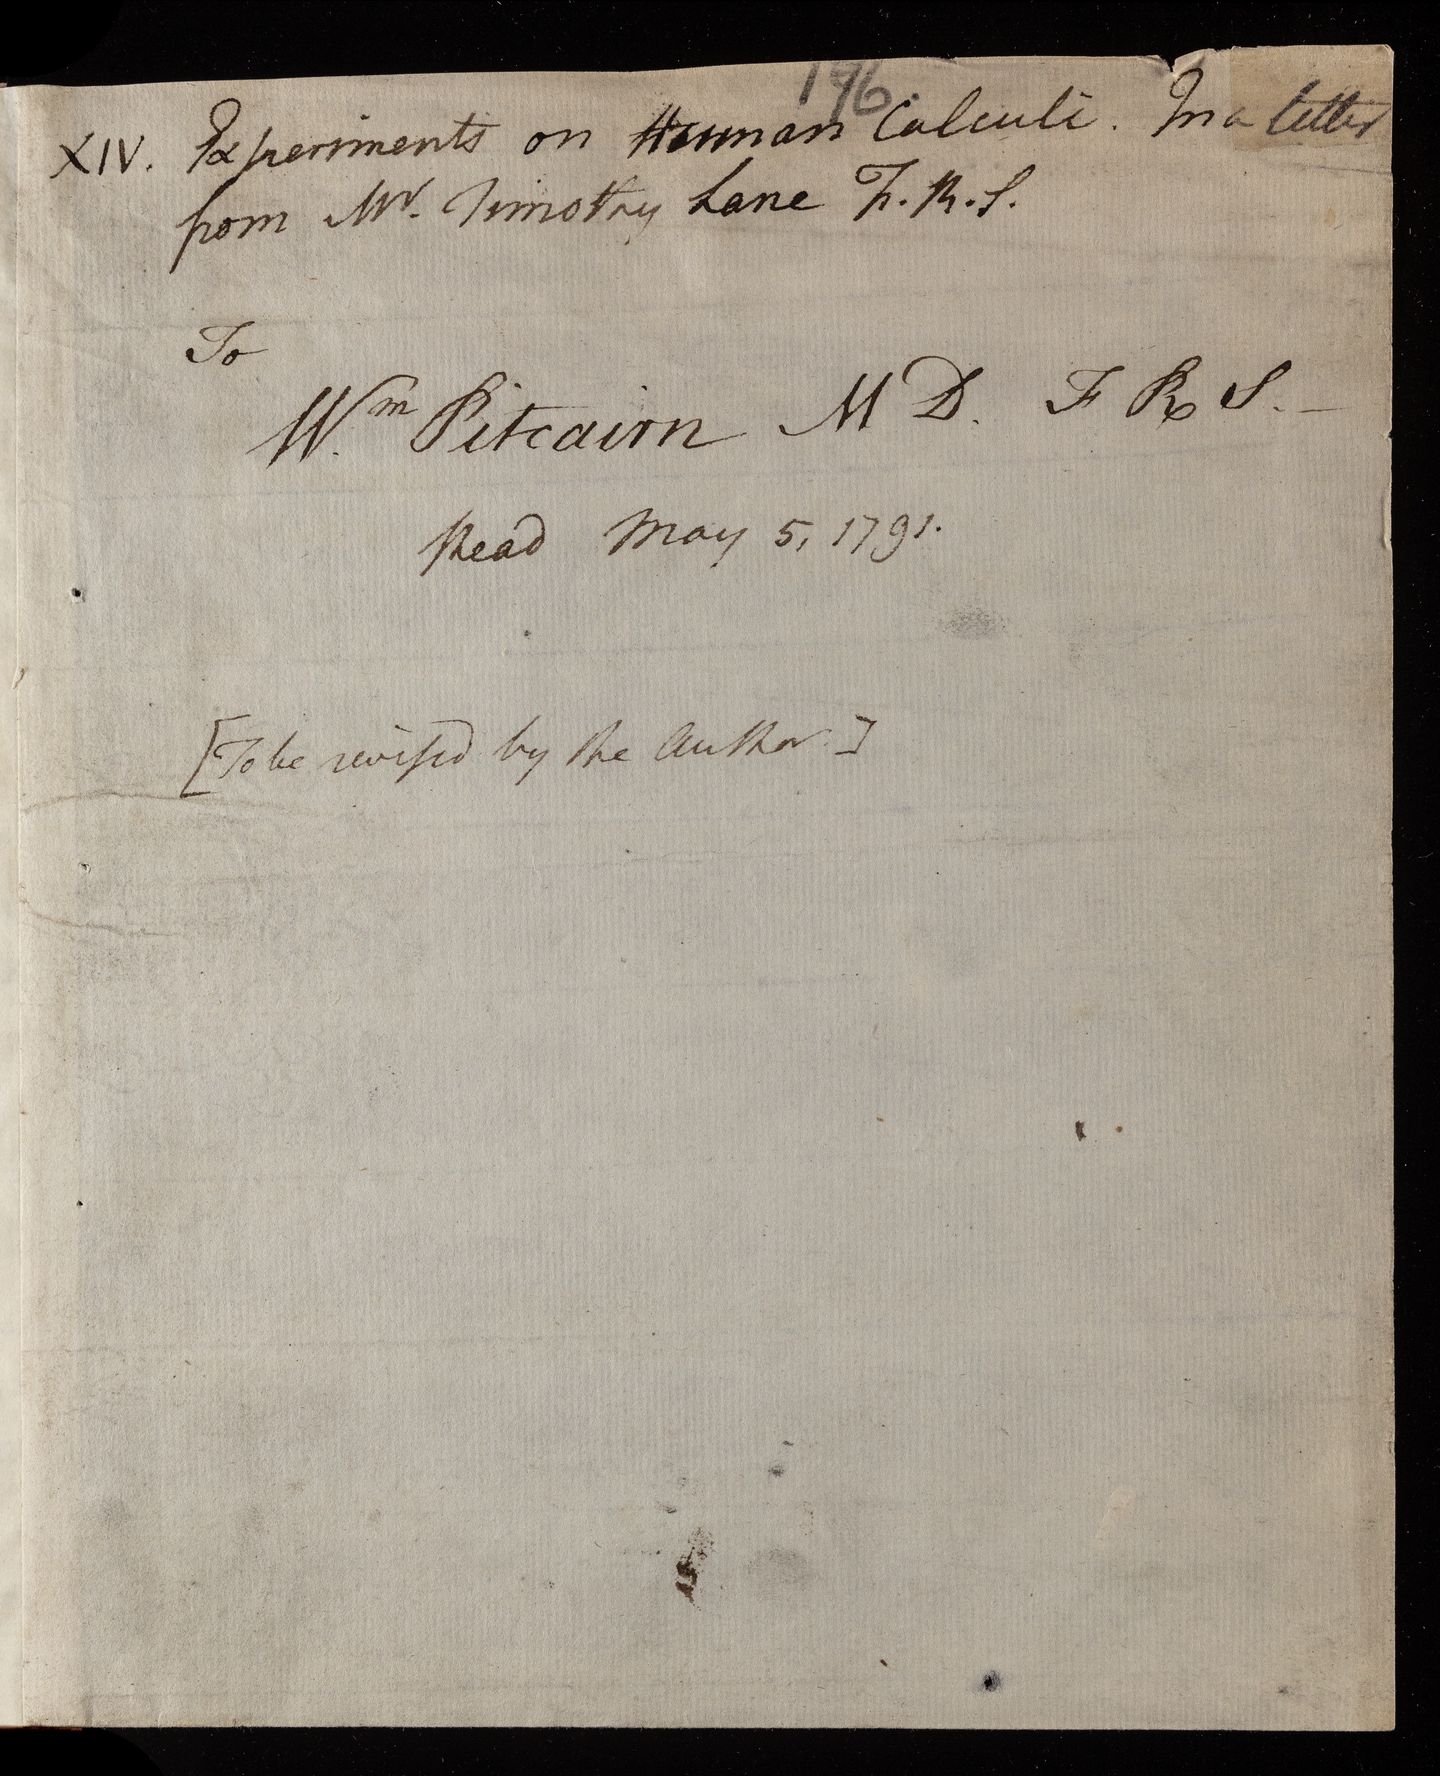 196.
XIV. Experiments on Human Calculi. In a letter
from Mr. Timothy Lane F.R.S.
To
Wm Pitcairn M D. F R S.
Read May 5, 1791.
[To be revised by the Author.]